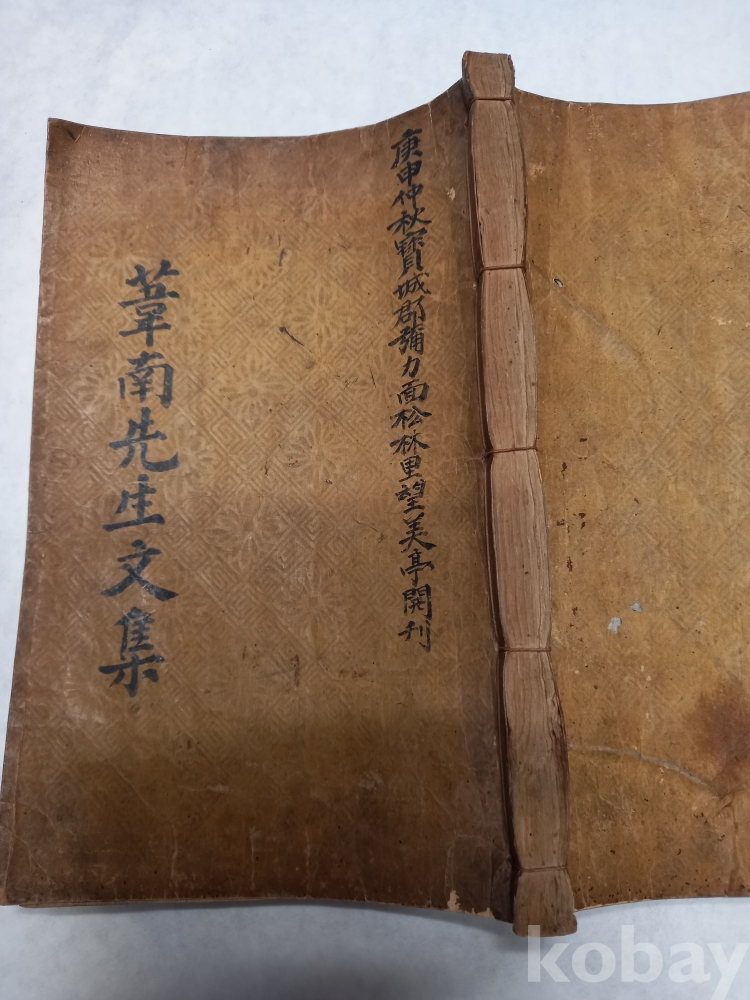 庚申仲秋寶城郡彌力面松林里望美亭開刊
葦南先生文集
kobay